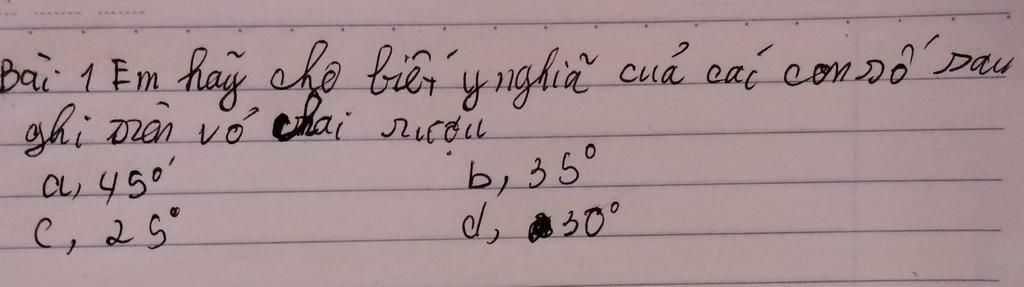 Bài 1 Em hãy cho biết ý nghĩa của các con số sau
ghi trên vỏ chai rượu
a, 45° b, 35°
c, 25° d, 30°